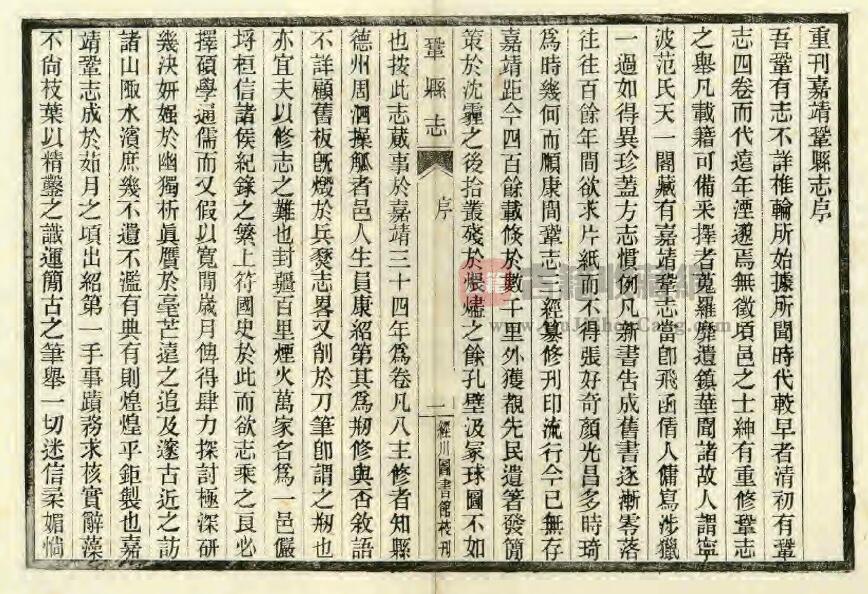 重刊嘉靖鞏縣志序
吾鞏有志不詳椎輪所始據所聞時代較早者清初有鞏
志四卷而代遠年湮邈焉無徵項邑之士紳有重修鞏志
之舉凡載籍可備采擇者蒐羅靡遺鎮華聞諸故人謂寧
波范氏天一閣藏有嘉靖鞏志當卽飛函倩人傭寫涉獵
一過如得異珍蓋方志慣例凡新書告成舊書逐漸零落
往往百餘年間欲求片紙而不得張好奇顏光昌多時琦
爲時幾何而順康間鞏志一經纂修刊印流行今已無存
嘉靖距今四百餘載倐於數千里外獲覩先民遺箸發簡
策於沈霾之後拾叢殘於煨燼之餘孔壁汲冢球圖不如
鞏縣志 序 一 經川圖書館校刊
也按此志蕆事於嘉靖三十四年爲卷凡八主修者知縣
德州周泗操觚者邑人生員康紹第其爲刱修與否敘語
不詳顧舊板旣燬於兵燹志畧又削於刀筆卽謂之刱也
亦宜夫以修志之難也封疆百里煙火萬家名爲一邑儼
埒桓信諸侯紀錄之繁上符國史於此而欲志乘之良必
擇碩學通儒而又假以寬閒歲月俾得肆力探討極深研
幾決妍媸於幽獨析眞贋於毫芒遠之追及邃古近之訪
諸山陬水濱庶幾不遺不濫有典有則煌煌乎鉅製也嘉
靖鞏志成於茹月之項出紹第一手事蹟務求核實辭藻
不尙枝葉以精鑿之識運簡古之筆舉一切迷信柔媚惝